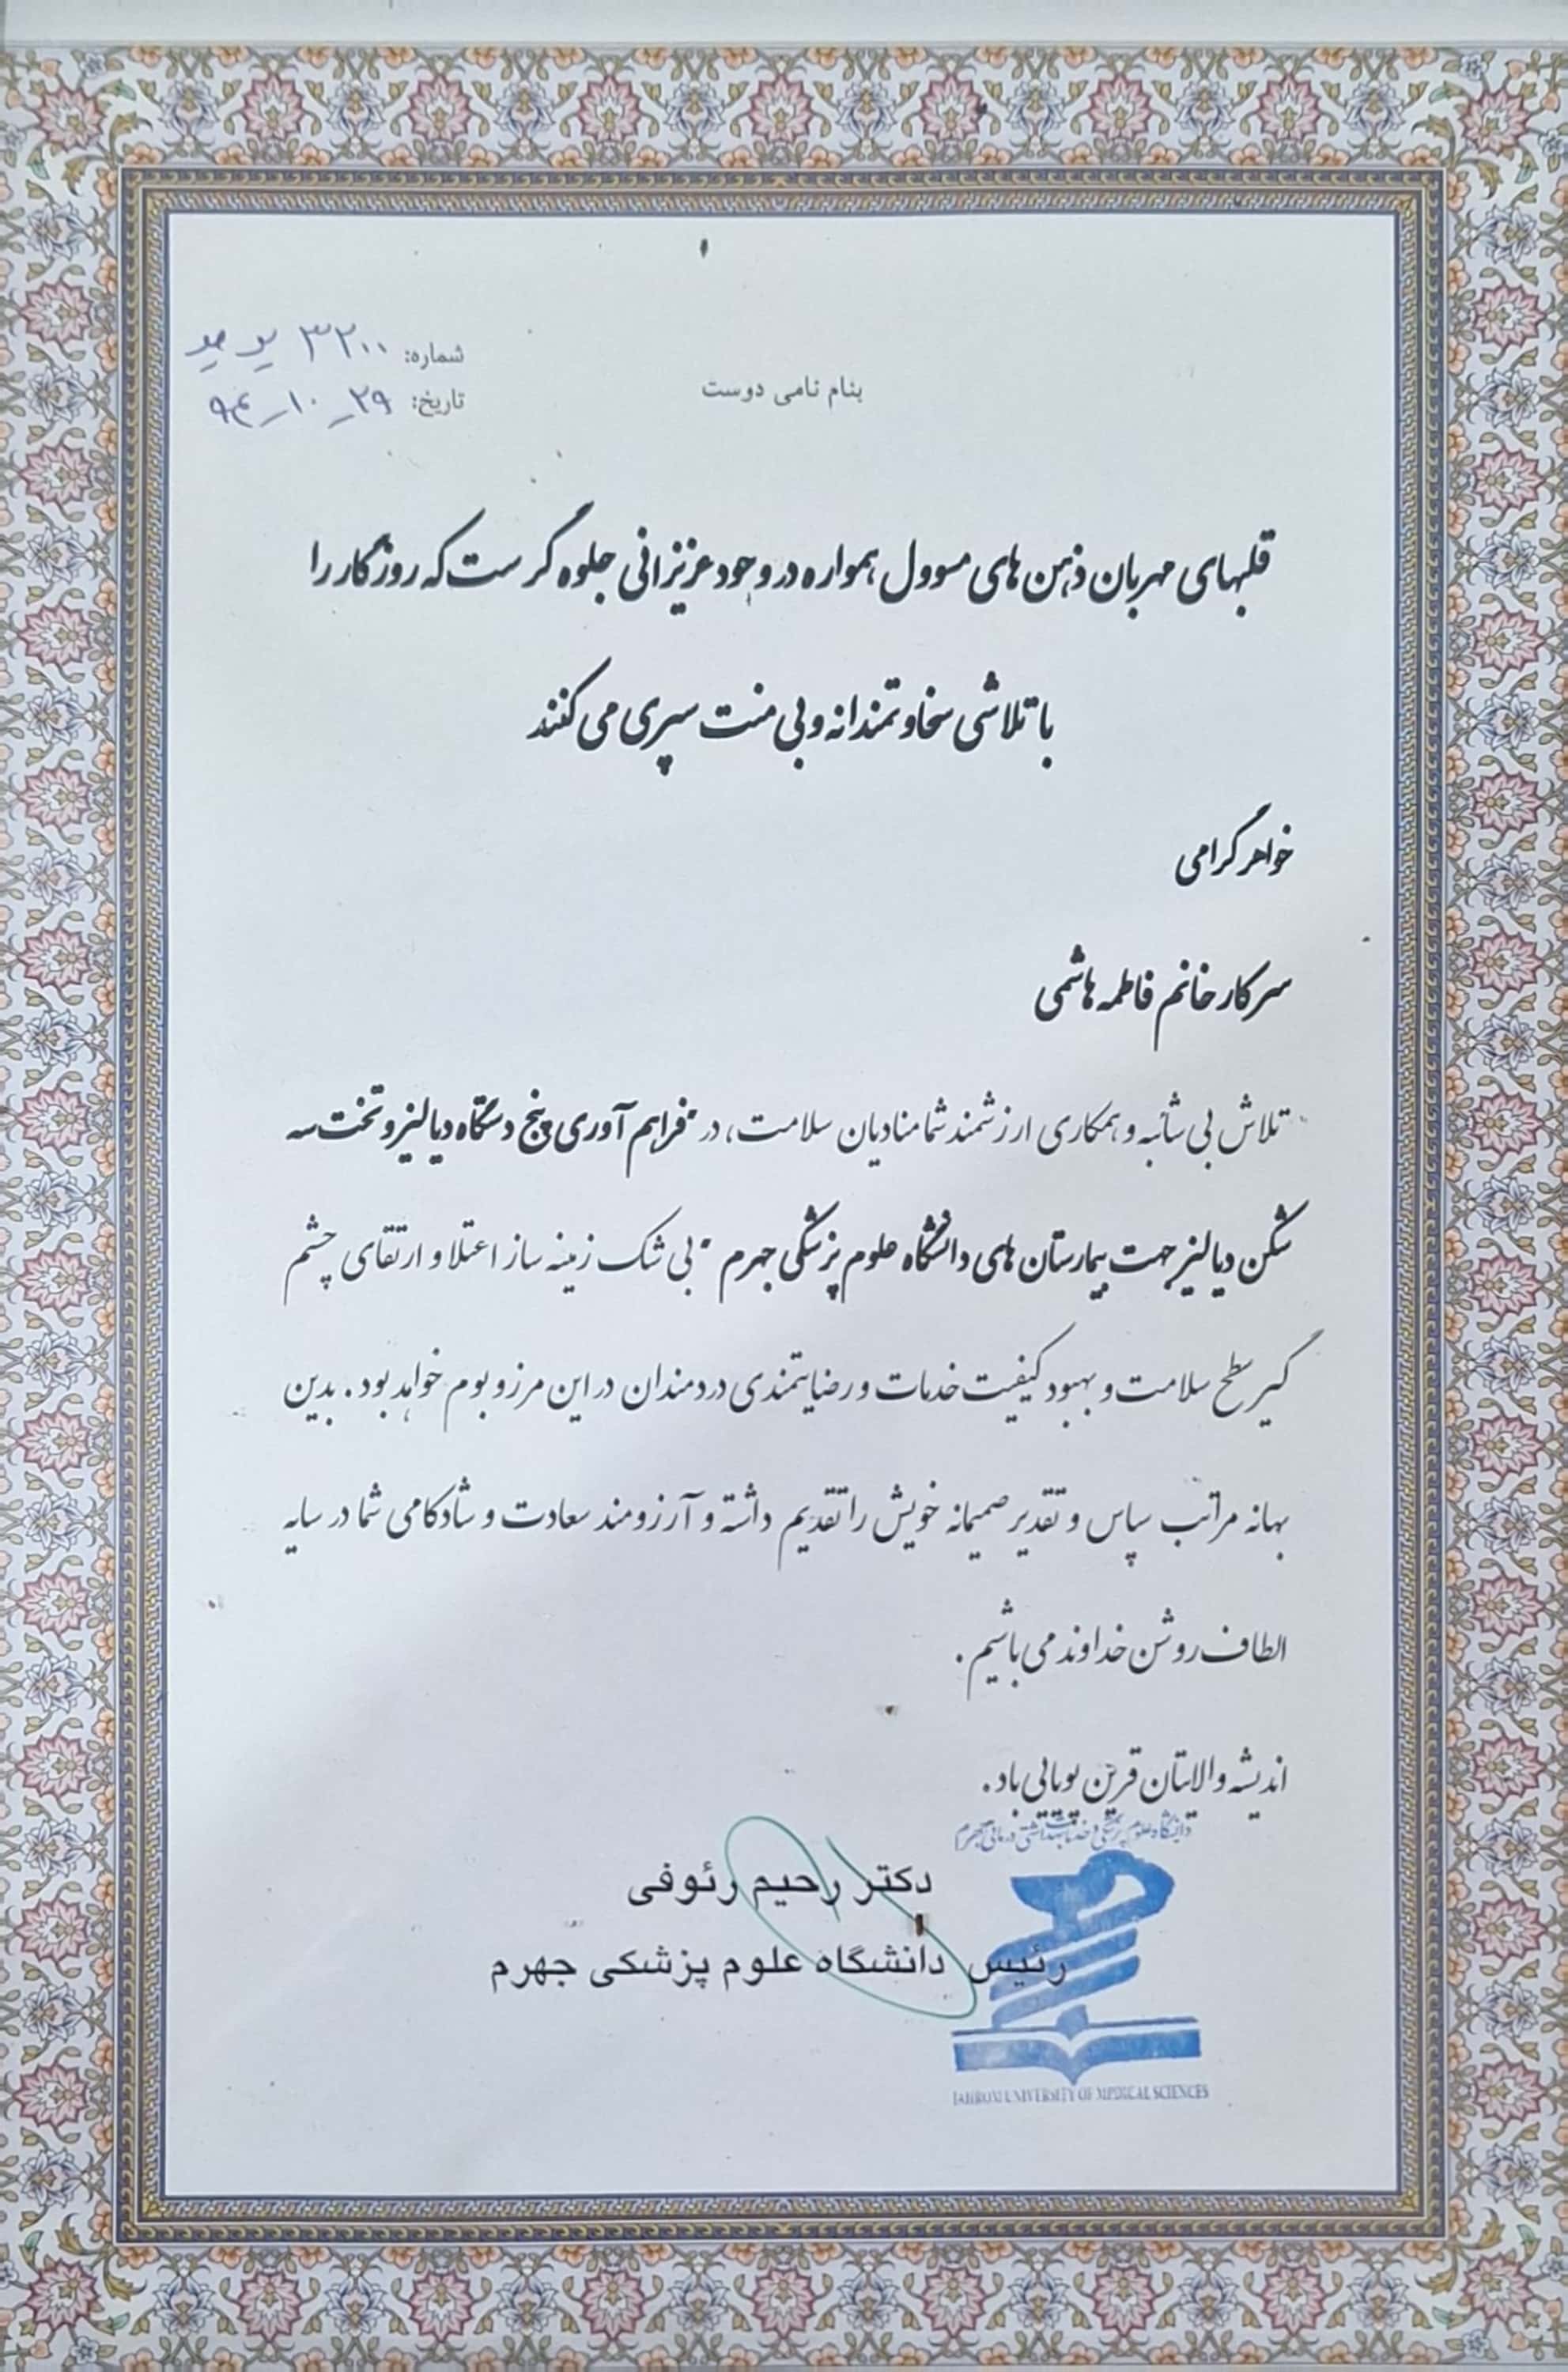 شماره: ۳۲۰۰
تاریخ: ۲۹-۱۰-۹۴
بنام نامی دوست
قلبهای مهربان ذهن های مسوول همواره در وجود عزیزانی جلوه گر ست که روزگار را
با تلاشی سخاوتمندانه و بی منت سپری می کنند
خواهر گرامی
سرکار خانم فاطمه هاشمی
تلاش بی شائبه و همکاری ارزشمند شما منادیان سلامت، در "فراهم آوری پنج دستگاه دیالیز و تخت سه
شکن دیالیز جهت بیمارستان های دانشگاه علوم پزشکی جهرم " بی شک زمینه ساز اعتلا و ارتقای چشم
گیر سطح سلامت و بهبود کیفیت خدمات و رضایتمندی دردمندان در این مرز و بوم خواهد بود. بدین
بهانه مراتب سپاس و تقدیر صمیمانه خویش را تقدیم داشته و آرزومند سعادت و شادکامی شما در سایه
الطاف روشن خداوند می باشیم.
اندیشه والایتان قرین پویایی باد.
دانشگاه علوم پزشکی و خدمات بهداشتی درمانی جهرم
دکتر رحیم رئوفی
رئیس دانشگاه علوم پزشکی جهرم
JAHROM UNIVERSITY OF MEDICAL SCIENCES